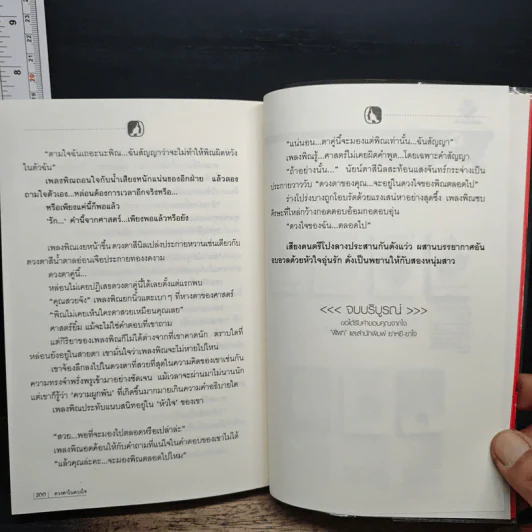 “ตามใจฉันเถอะนะพิณ...ฉันสัญญาว่าจะไม่ทำให้พิณผิดหวัง
ในตัวฉัน”
เพลงพิณถอนใจกับน้ำเสียงหนักแน่นของอีกฝ่าย แล้วลอง
ถามใจตัวเอง...หล่อนต้องการเวลาอีกจริงหรือ...
หรือเพียงแค่นี้ก็พอแล้ว
‘รัก...’ คำนี้จากศาสตร์...เพียงพอแล้วหรือยัง
เพลงพิณเงยหน้าขึ้น ดวงตาสีนิลเปล่งประกายหวานเช่นเดียวกับ
ดวงตาสีน้ำตาลอ่อนเจือประกายทองงดงาม
ดวงตาคู่นี้...
หล่อนไม่เคยปฏิเสธดวงตาคู่นี้ได้เลยตั้งแต่แรกพบ
“คุณสวยจัง” เพลงพิณยกนิ้วแตะเบา ๆ ที่หางตาของศาสตร์
“พิณไม่เคยเห็นใครตาสวยเหมือนคุณเลย”
ศาสตร์ยิ้ม แม้จะไม่ใช่คำตอบที่เขาถาม
แต่กิริยาของเพลงพิณก็ไม่ได้ต่างจากที่เขาคาดนัก ตราบใดที่
หล่อนยังอยู่ในสายตา เขามั่นใจว่าเพลงพิณจะไม่หายไปไหน
เขาจ้องลึกลงไปในดวงตาที่สวยที่สุดในความคิดของเขาเช่นกัน
ความทรงจำพรั่งพรูเข้ามาอย่างชัดเจน แม้เวลาจะผ่านมาไม่นานนัก
แต่เขาก็รู้ว่า ‘ความผูกพัน’ ที่เกิดขึ้นมากมายเกินความคำอธิบายใด
เพลงพิณประทับแนบสนิทอยู่ใน ‘หัวใจ’ ของเขา
“สวย...พอที่จะมองไปตลอดหรือเปล่าล่ะ”
เพลงพิณอดค้อนให้กับคำถามที่แน่ใจในคำตอบของเขาไม่ได้
“แล้วคุณล่ะคะ...จะมองพิณตลอดไปไหม”
200 | ดวงตาในดวงใจ
“แน่นอน...ตาคู่นี้จะมองแต่พิณเท่านั้น...ฉันสัญญา”
เพลงพิณรู้...ศาสตร์ไม่เคยผิดคำพูด...โดยเฉพาะคำสัญญา
“ถ้าอย่างนั้น...” นัยน์ตาสีนิลสะท้อนแสงจันทร์กระจ่างเป็น
ประกายวาววับ “ดวงตาของคุณ...จะอยู่ในดวงใจของพิณตลอดไป”
ร่างโปร่งบางถูกโอบรัดด้วยแรงเสน่หาอย่างสุดซึ้ง เพลงพิณซบ
ศีรษะที่ไหล่กว้างกอดตอบร้อมกอดอบอุ่น
“ดวงใจของฉัน...ตลอดไป”
เสียงดนตรีไปงลางประสานกันดังแว่ว ผสานบรรยากาศอัน
อบอวลด้วยหัวใจอุ่นรัก ดั่งเป็นพยานให้กับสองหนุ่มสาว
<<< จบบริบูรณ์ >>>
ขอได้รับคำขอบคุณจากใจ